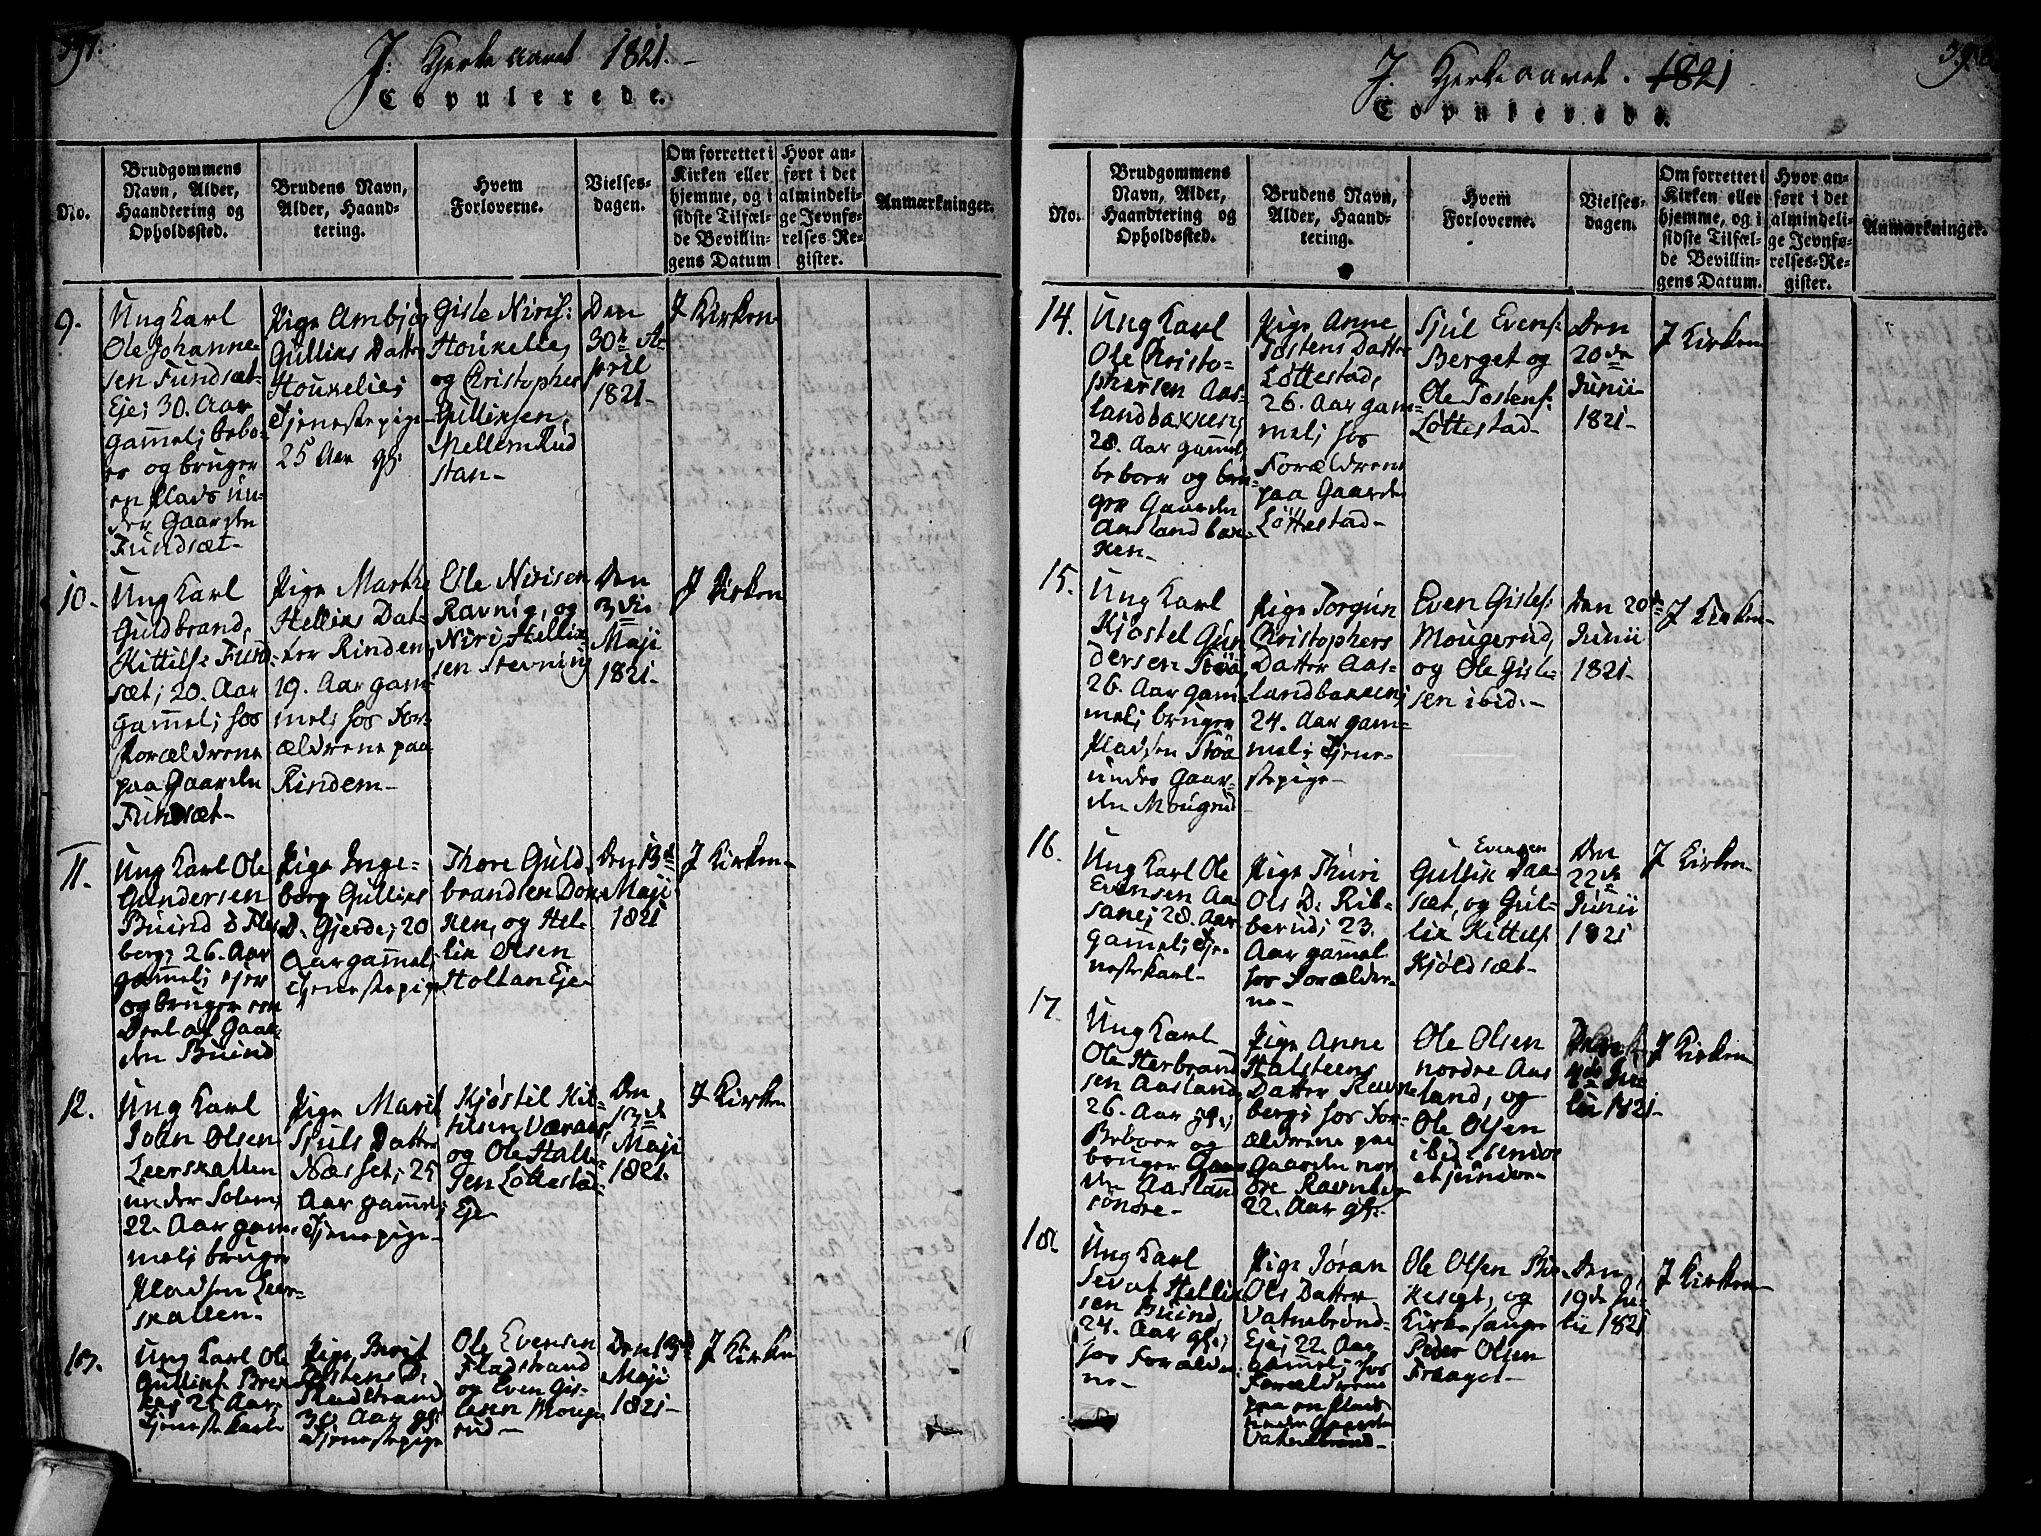 397.
J. Kjerke aaret 1821.-
Copulerede.
No.
Brudgommens
Navn, Alder,
Haandtering og
Opholdssted.
Brudens Navn,
Alder, Haand-
tering.
Hvem
Forloverne.
Vielses-
dagen.
Om forrettet i
Kirken eller
hjemme, og i
sidste Tilfæl-
de Bevillin-
gens Datum
Hvor an-
ført i det
almindeli-
ge Jevnfø-
relses-Re-
gister.
Anmærkninger.
9.
Ung Karl
Ole Johanne-
sen Fundsæt-
Eje; 30. Aar
gam̄el; bebo-
er og bruger
en Plads un-
der Gaarden
Fundsæt-
Pige Ambjør
Gulliks Datter
Houkelie;
Tjenestepige
25 Aar gl:
Gisle Niris:
Houkelie,
og Christopher
Gulliksen,
MellemRud
stan-
Den
30te A-
pril
1821-
J Kirken
10.
Ung Karl
Guldbrand,
Kittils: Fund
sæt; 20. Aar
gam̄el; hos
Forældrene
paa Gaarden
Fundsæt-
Pige Marthe
Helliks Dat-
ter Rinden,
19. Aar gam-
mel; hos For-
ældrene paa
Rindem-
Ole Nirisen
Ravnig, og
Niri Hellik
sen Stevning
Den
3die
Maji
1821-
J Kirken
11.
Ung Karl Ole
Gundersen
Buind
berg; 26. Aar
gam̄el; ejer
og bruger en
Deel af Gaar-
den Buind
Pige Inge-
borg Gulliks
D. Gjerde; 20
Aar gam̄el;
tjenestepige
Thore Guld-
brandsen Don-
ken, og Hel-
lik Olsen
Holtan Eje-
Den 13de
Maji
1821
J Kirken-
12.
Ung Karl
John Olsen
Leerskallen
under Solem,
22. Aar gam-
mel; bruger
Pladsen Leer-
skallen.
Pige Marit
Sjuls Datter
Næsset; 25
Aar gam̄el;
Tjenepige-
Kjøstil Kit-
tilsen Væraas,
og Ole Halt-
sen Løttestad-
Eje-
Den
13de
Maji
1821.
J Kirken
13.
Ung Karl Ole
Gulliks: Brek
ke; 25 Aar,
Tjenestekarl
Pige Berit
Tostens D:
Fladstrand
30 Aar gl:
Tjenestepige
Ole Evensen
Fladstrand
og Even Gis-
lesen Mouge-
rud-
Den 13de
Maji
1821-
J Kirken
J. Kjerke aaret. 1821
Copulerede.
No.
Brudgommens
Navn, Alder,
Haandtering og
Opholdssted.
Brudens Navn,
Alder, Haand-
tering.
Hvem
Forloverne.
Vielses-
dagen.
Om forrettet i
Kirken eller
hjemme, og i
sidste Tilfæl-
de Bevillin-
gens Datum.
Hvor an-
ført i det
almindeli-
ge Jevnfø-
relses-Re-
gister.
Anmærkninger.
14.
Ung Karl
Ole Christo-
phersen Aas-
landbakken;
28. Aar gam̄el,
beboer og bru-
ger Gaarden
Aaslandbak-
ken-
Pige Anne
Tostens Datter
Løttestad,
26. Aar gam-
mel; hos
Forældrene
paa Gaarden
Løttestad-
Sjul Evens:
Berget og
Ole Tostens:
Løttestad-
Den
20de
Junii
1821-
J Kirken
15.
Ung Karl
Kjøstel Gun
dersen Stöa,
26. Aar gam-
mel; bruger
Pladsen Stöa
under Gaar-
den Mougrud
Pige Torgun
Christophers
Datter Aas-
landbakken;
24. Aar gam-
mel; Tjene-
stepige-
Even Gisles:
Mougerud,
og Ole Gisle-
sen ibid.-
Den 20de
Junii
1821-
J Kirken-
16.
Ung Karl Ole
Evensen Aa-
sane; 28. Aar
gam̄el; Tje-
nestekarl-
Pige Thuri
Ols D. Rib-
berud; 23.
Aar gam̄el
hos Forælder-
ne-
Evensen
Gullik Daa-
sæt, og Gul-
lik Kittils:
Kjøldsæt-
Den
22de
Junii
1821
J Kirken-
17.
Ung Karl
Ole Herbrand
sen Aasland,
26. Aar gl;
Beboer og
bruger Gaar-
den Aasland
söndre-
Pige Anne
Halsteens
Datter Ravne
berg; hos For-
ældrene paa
Gaarden nor
dre Ravneberg
22. Aar gl:
Ole Olsen
nordre Aas
land, og
Ole Olsen
ibid
Den
4de Ju-
lii 1821-
J Kirken
18.
Ung Karl
Sevat Hellik
sen Buind,
24. Aar gl;
hos Forældre
ne-
Pige Jøran
Ols Datter
Vatnebrønd-
Eje; 22. Aar
gam̄el; hos
Forældrene
paa en Plads
under Gaarden
Vatnebrønd-
Ole Olsen Bir-
keset, og
Kirkesanger
Peder Olsen
Traaget-
Den
19de Ju-
lii 1821
J Kirken-